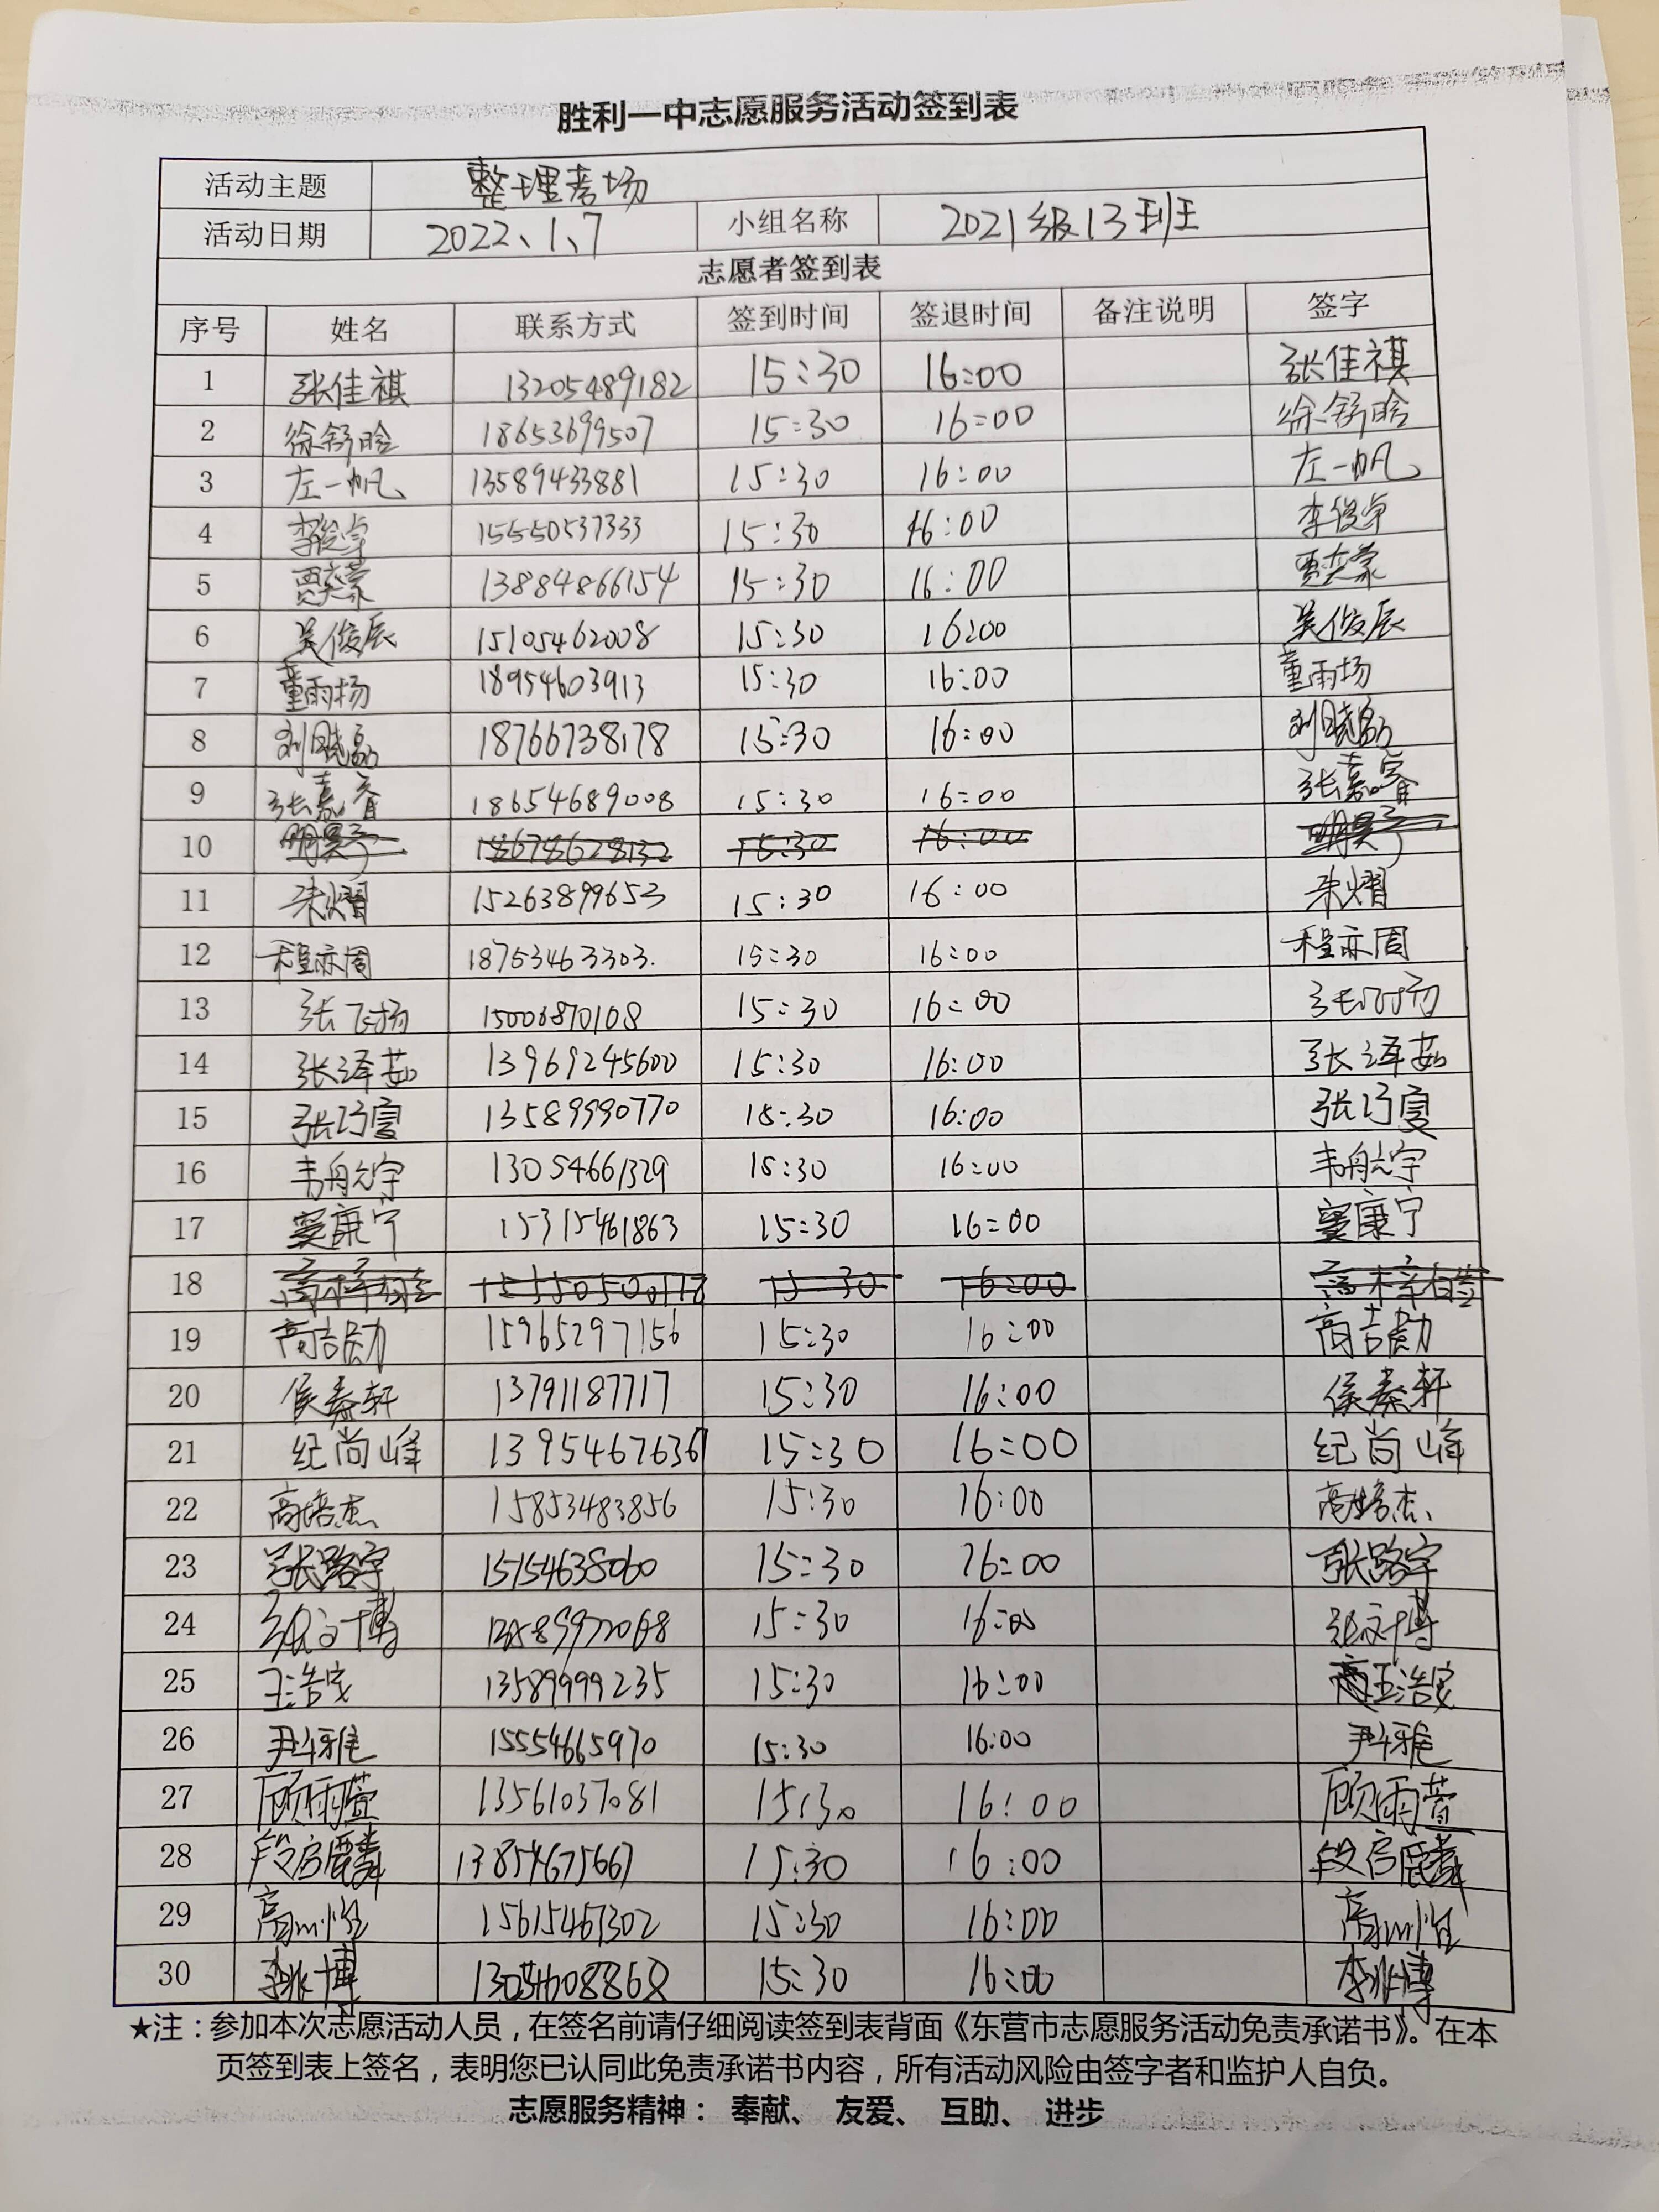 胜利一中志愿服务活动签到表
活动主题 整理考场
活动日期 2022、1、7 小组名称 2021级13班
志愿者签到表
序号 姓名 联系方式 签到时间 签退时间 备注说明 签字
1 张佳祺 13205489182 15:30 16:00 张佳祺
2 徐舒晗 18653699507 15:30 16:00 徐舒晗
3 左一帆 13589433881 15:30 16:00 左一帆
4 李俊卓 15550537333 15:30 16:00 李俊卓
5 贾奕蒙 13884866154 15:30 16:00 贾奕蒙
6 吴俊辰 15105462008 15:30 16:00 吴俊辰
7 董雨扬 18954603913 15:30 16:00 董雨扬
8 刘晓磊 18766738178 15:30 16:00 刘晓磊
9 张嘉睿 18654689008 15:30 16:00 张嘉睿
10 18678628132 15:30 16:00
11 朱熠 15263899653 15:30 16:00 朱熠
12 程亦周 18753463303. 15:30 16:00 程亦周
13 张飞扬 15006870108 15:30 16:00 张飞扬
14 张泽茹 13969245600 15:30 16:00 张泽茹
15 张巧夏 13589990770 15:30 16:00 张巧夏
16 韦舟宇 13054661329 15:30 16:00 韦舟宇
17 窦康宁 15315461863 15:30 16:00 窦康宁
18 15:30 16:00
19 高吉勋 15965297156 15:30 16:00 高吉勋
20 侯秦轩 13791187717 15:30 16:00 侯秦轩
21 纪尚峰 13954676367 15:30 16:00 纪尚峰
22 高培杰 15853483856 15:30 16:00 高培杰
23 张路宇 15154638060 15:30 16:00 张路宇
24 张文博 15:30 16:00 张文博
25 王浩宇 13589999235 15:30 16:00 王浩宇
26 尹雅 15554665970 15:30 16:00 尹雅
27 顾雨萱 13561037081 15:30 16:00 顾雨萱
28 段启麟 13854675667 15:30 16:00 段启麟
29 高 15615467302 15:30 16:00 高
30 李兆博 15:30 16:00 李兆博
★注：参加本次志愿活动人员，在签名前请仔细阅读签到表背面《东营市志愿服务活动免责承诺书》。在本
页签到表上签名，表明您已认同此免责承诺书内容，所有活动风险由签字者和监护人自负。
志愿服务精神： 奉献、 友爱、 互助、 进步